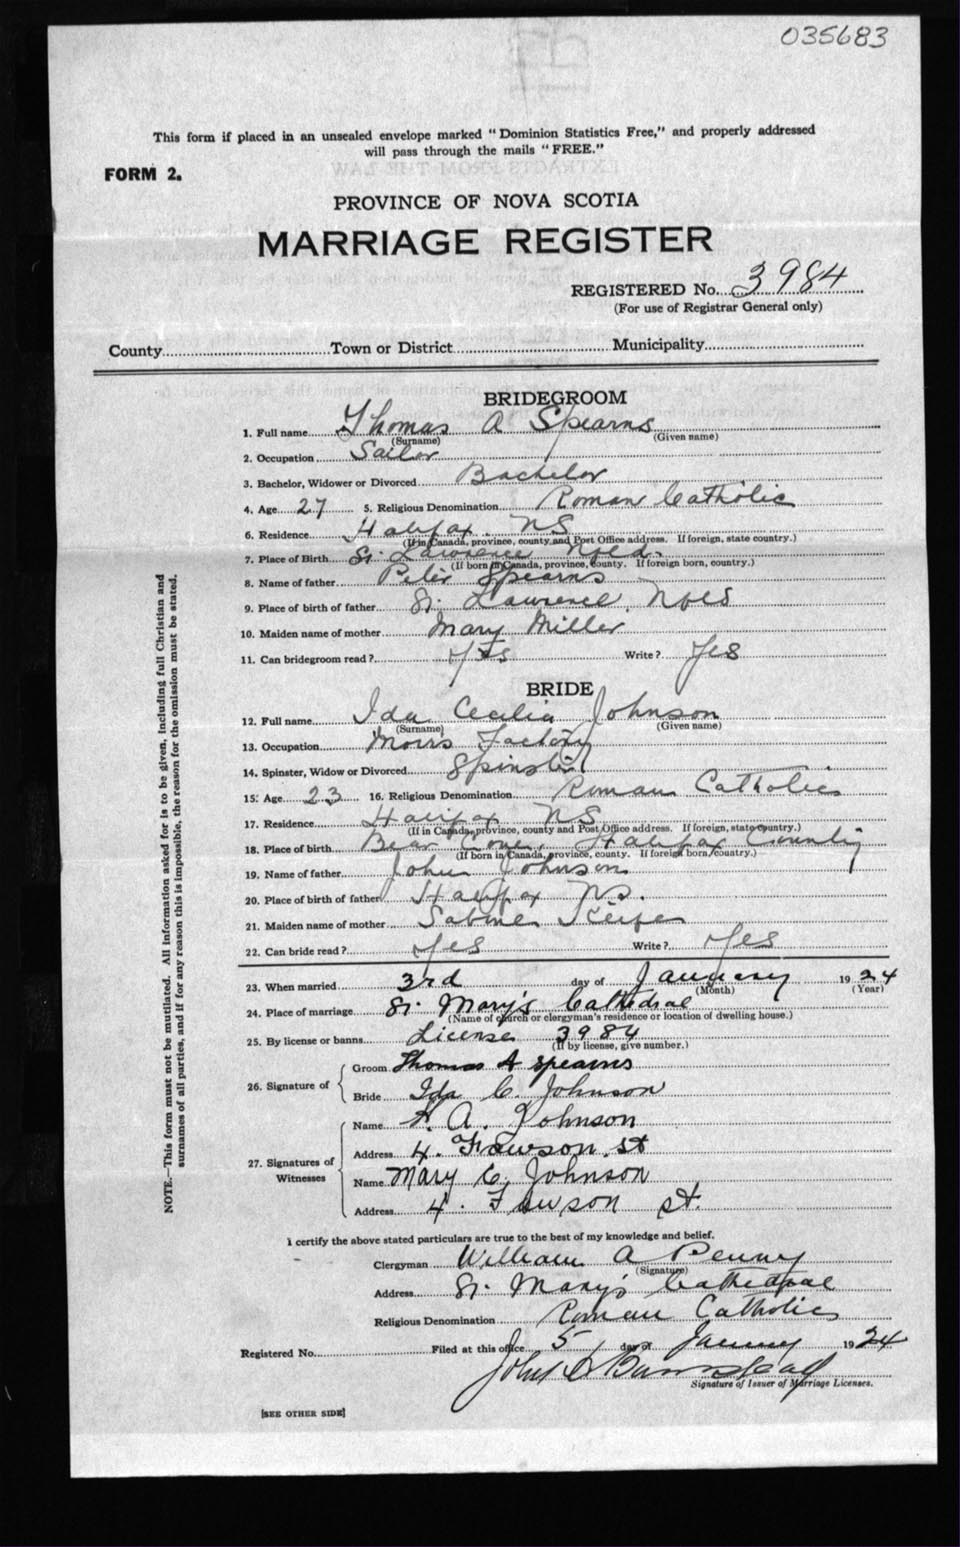 035683
This form if placed in an unsealed envelope marked "Dominion Statistics Free," and properly addressed
will pass through the mails "FREE."
FORM 2.
PROVINCE OF NOVA SCOTIA
MARRIAGE REGISTER
REGISTERED No. 3984
(For use of Registrar General only)
County Town or District Municipality
BRIDEGROOM
1. Full name Thomas A Spearns
(Surname) (Given name)
2. Occupation Sailor
3. Bachelor, Widower or Divorced Bachelor
4. Age 27 5. Religious Denomination Roman Catholic
6. Residence Halifax NS
(If in Canada, province, county and Post Office address. If foreign, state country.)
7. Place of Birth St. Lawrence Nfld.
(If born in Canada, province, county. If foreign born, country.)
8. Name of father Peter Spearns
9. Place of birth of father St. Lawrence, Nfld
10. Maiden name of mother Mary Miller
11. Can bridegroom read? Yes Write? Yes
BRIDE
12. Full name Ida Cecilia Johnson
(Surname) (Given name)
13. Occupation Moirs Factory
14. Spinster, Widow or Divorced Spinster
15. Age 23 16. Religious Denomination Roman Catholic
17. Residence Halifax NS
(If in Canada, province, county and Post Office address. If foreign, state country.)
18. Place of birth Bear Cove, Halifax County
(If born in Canada, province, county. If foreign born, country.)
19. Name of father John Johnson
20. Place of birth of father Halifax NS.
21. Maiden name of mother
22. Can bride read? Yes Write? Yes
23. When married 3rd day of January 1924
(Month) (Year)
24. Place of marriage St. Mary's Cathedral
(Name of church or clergyman's residence or location of dwelling house.)
25. By license or banns License 3984
(If by license, give number.)
26. Signature of
Groom Thomas A Spearns
Bride Ida C. Johnson
27. Signatures of Witnesses
Name A. Johnson
Address 4. Fawson. St
Name Mary C. Johnson
Address 4. Fawson st.
I certify the above stated particulars are true to the best of my knowledge and belief.
Clergyman William A Penny
(Signature)
Address St. Mary's Cathedral
Religious Denomination Roman Catholic
Registered No. Filed at this office 5 day of January 1924
John
Signature of Issuer of Marriage Licenses.
[SEE OTHER SIDE]
NOTE.—This form must not be mutilated. All information asked for is to be given, including full Christian and
surnames of all parties, and if for any reason this is impossible, the reason for the omission must be stated.